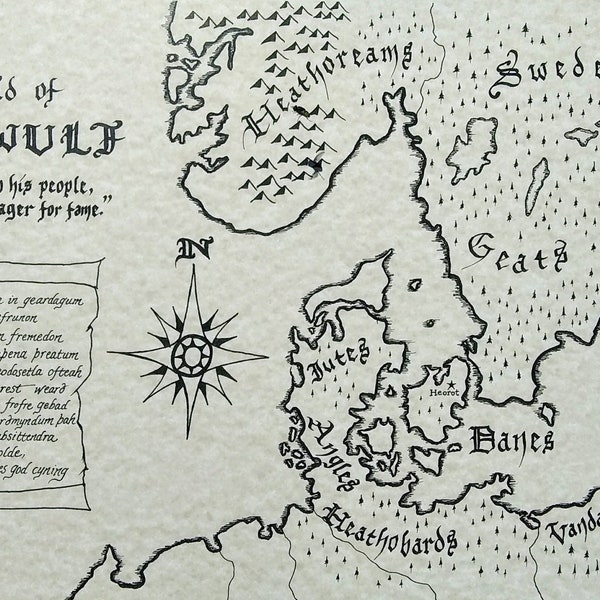 ld of
WULF
o his people,
ager for fame."
in geardagum
frunon
fremedon
þreatum
ofteah
rest weard
frofre gebad
þah
bsittendra
olde,
god cyning
N
Heathoreams
Swede
Geats
Jutes
Heorot
Angles
Danes
Heathobards
Vanda